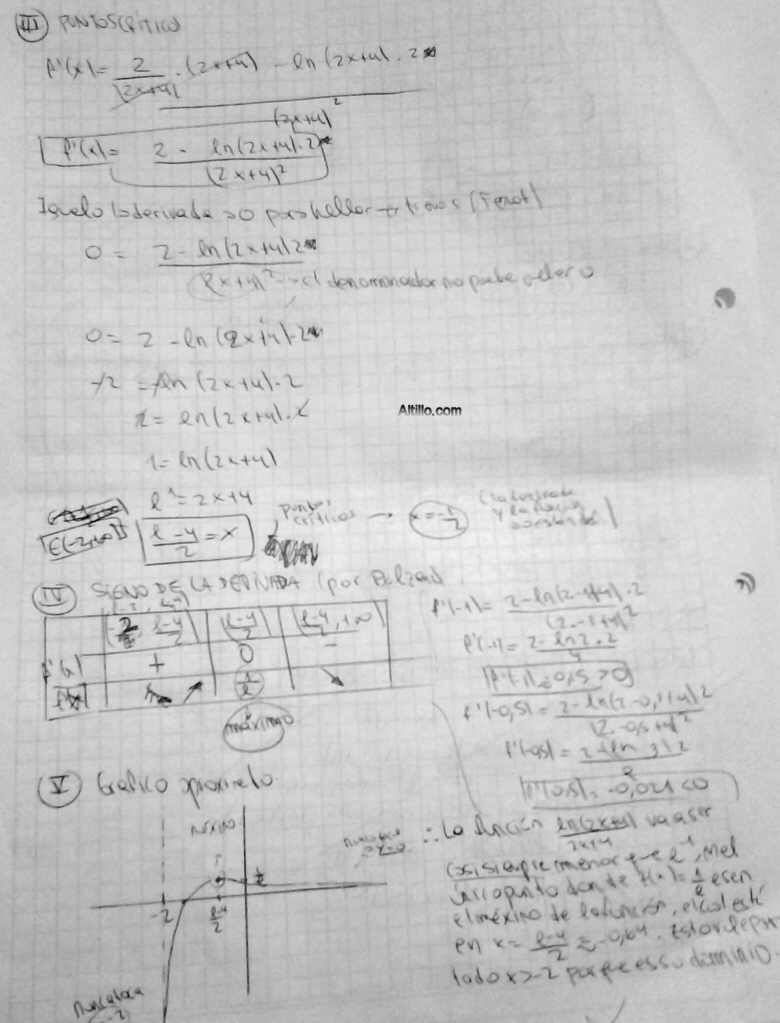 III PUNTOS CRÍTICO
f'(x) = 2/(2x+4) · (2x+4) - ln(2x+4) · 2
(2x+4)²
f'(x) = 2 - ln(2x+4) · 2
(2x+4)²
Igualo la derivada a 0 para hallar (Fermat)
0 = 2 - ln(2x+4) 2
(2x+4)² → el denominador no puede valer 0
0 = 2 - ln(2x+4) · 2
-2 = -ln(2x+4) · 2
2 = ln(2x+4) · 2
Altillo.com
1 = ln(2x+4)
e¹ = 2x+4
E(-2,+∞) e-4/2 = x puntos críticos →
IV SIGNO DE LA DERIVADA (por Bolzano)
(-2, e-4/2) (e-4/2) (e-4/2, +∞)
f'(x) + 0 -
↗ 1/e ↘
máximo
f'(-1) = 2 - ln(2·-1+4) · 2
(2·-1+4)²
f'(-1) = 2 - ln 2 · 2
4
f'(-1) ≈ 0,15 > 0
f'(-0,5) = 2 - ln(2·-0,5+4) 2
(2·-0,5+4)²
f'(-0,5) = 2 - ln 3 · 2
9
f'(-0,5) = -0,021 < 0
V Gráfico aproximado
MÁXIMO
-2 e-4/2 1/e
nunca toca
∴ La función ln(2x+4) va a ser
2x+4
casi siempre menor que e⁻¹, y el
único punto donde f(x) = 1/e es en
el máximo de la función, el cual está
en x = e-4/2 ≈ -0,64. Esto
dado x>-2 porque es su dominio.
nunca toca
-2